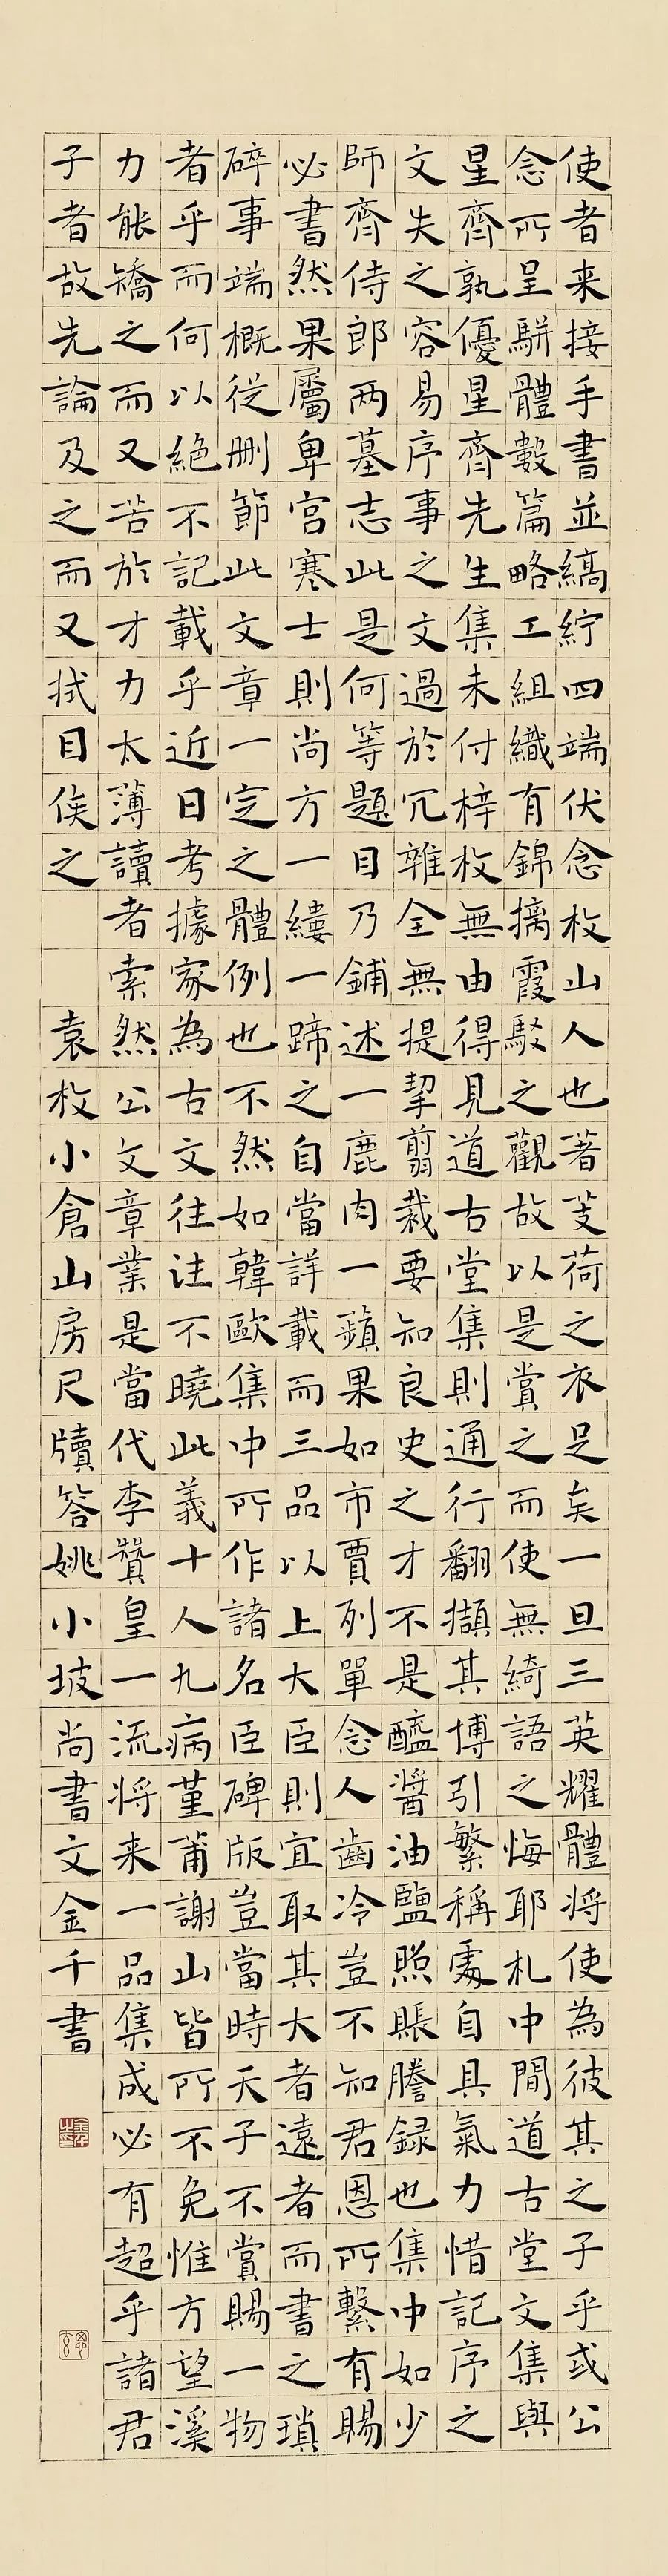 使者来接手書並縞紵四端伏念枚山人也著芰荷之衣足矣一旦三英耀體将使為彼其之子乎或公
念所呈駢體數篇略工組織有錦摛霞駁之觀故以是賞之而使無綺語之悔耶札中間道古堂文集與
星齊孰優星齊先生集未付梓枚無由得見道古堂集則通行翻擷其博引繁稱處自具氣力惜記序之
文失之容易序事之文過於冗雜全無提挈翦裁要知良史之才不是醯醬油鹽照賬謄録也集中如少
師齊侍郎兩墓志此是何等題目乃鋪述一鹿肉一蘋果如市賈列單念人齒冷豈不知君恩所繫有賜
必書然果屬卑宫寒士則尚方一縷一蹄之自當詳載而三品以上大臣則宜取其大者遠者而書之瑣
碎事端概從刪節此文章一定之體例也不然如韓歐集中所作諸名臣碑版豈當時天子不賞賜一物
者乎而何以絶不記載乎近日考據家為古文往往不曉此義十人九病堇莆謝山皆所不免惟方望溪
力能矯之而又苦於才力太薄讀者索然公文章業是當代李贊皇一流将来一品集成必有超乎諸君
子者故先論及之而又拭目俟之 袁枚小倉山房尺牘答姚小坡尚書文金千書